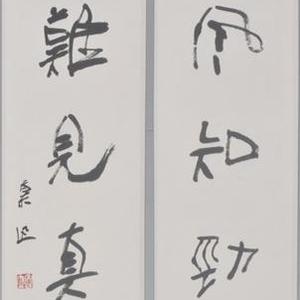 風知勁
難見真